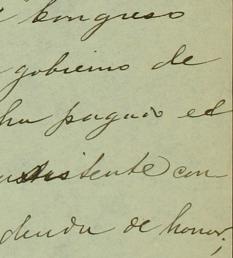 Congreso
gobierno de
ha pagado el
tente con
deuda de honor;